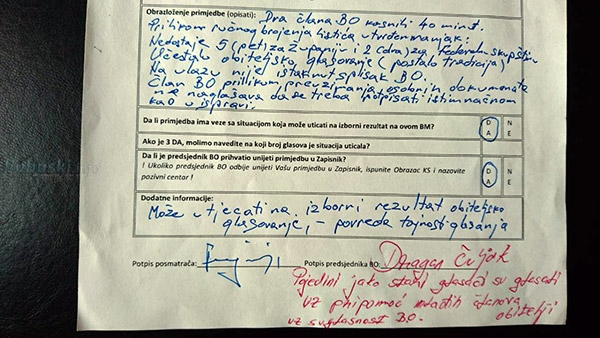 Obrazloženje primjedbe (opisati): Dva člana BO kasnili 40 minut.
Prilikom ručnog brojenja listića utvrđen manjak:
Nedostaje 5 (pet) za županiju i 2 (dva) za federalnu skupštinu
Učestalo obiteljsko glasovanje (postalo tradicija)
Na ulazu nije istaknut spisak BO.
Član BO prilikom preuzimanja osobnih dokumenata
ne naglašava da se treba potpisati istim načinom
kao u ispravi.
Da li primjedba ima veze sa situacijom koja može uticati na izborni rezultat na ovom BM? DA NE
Ako je 3 DA, molimo navedite na koji broj glasova je situacija uticala?
Da li je predsjednik BO prihvatio unijeti primjedbu u Zapisnik?
! Ukoliko predsjednik BO odbije unijeti Vašu primjedbu u Zapisnik, ispunite Obrazac KS i nazovite
pozivni centar ! DA NE
Dodatne informacije:
Može utjecati na izborni rezultat obiteljsko
glasovanje, – povreda tajnosti glasanja
Potpis posmatrača: Potpis predsjednika BO: Dragan Čuljak
Pojedini jako stari glasači su glasali
uz pripomoć mlađih članova
obitelji
uz suglasnost BO.